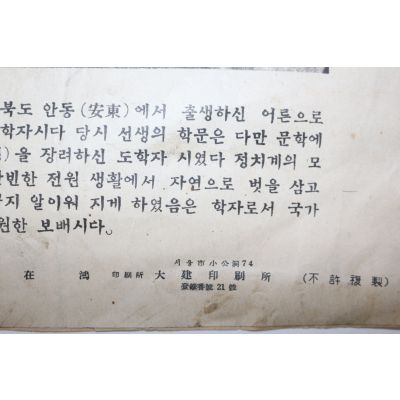 북도 안동(安東)에서 출생하신 어른으로
학자시다 당시 선생의 학문은 다만 문학에
)을 장려하신 도학자 시였다 정치계의 모
빈한 전원 생활에서 자연으로 벗을 삼고
지 알이워 지게 하였음은 학자로서 국가
원한 보배시다。
서울市小公洞74
在 鴻 印刷所 大建印刷所 (不許複製)
登錄番號 21 號